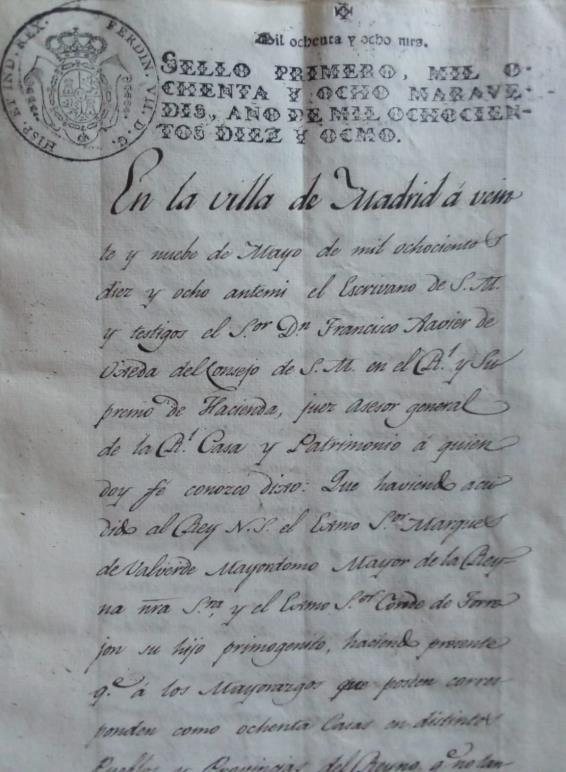 HISP. ET IND. REX. FERDIN. VII. D. G.
Mil ochenta y ocho mrs.
SELLO PRIMERO, MIL O-
CHENTA Y OCHO MARAVE-
DIS, AÑO DE MIL OCHOCIEN-
TOS DIEZ Y OCHO.
En la villa de Madrid á vein
te y nuebe de Mayo de mil ochocientos
diez y ocho antemi el Escrivano de S. M.
y testigos el S.or Dn Francisco Xavier de
del Consejo de S. M. en el Rl. y Su
premo de Hacienda, juez Asesor general
de la Rl. Casa y Patrimonio á quien
doy fé conozco dixo: Que haviendo acu
dido al Rey N. S. el Exmo S.or Marques
de Valverde Mayordomo Mayor de la Rey-
na nra S.ra, y el Exmo S.or Conde de Torre
jon su hijo primogenito, haciendo presente
q.e á los Mayorazgos que posèen corres
ponden como ochenta Casas en distintos
Pueblos y Provincias del Reyno, q.e no tan